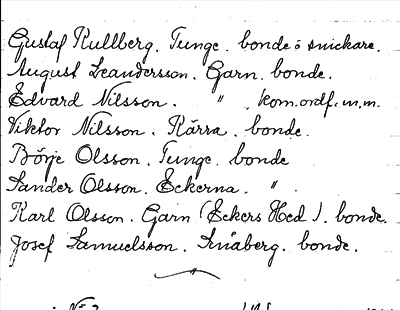 Gustaf Kullberg. Tunge. bonde o snickare.
August Leandersson. Garn. bonde.
Edvard Nilsson. " . kom.ordf. m.m.
Viktor Nilsson. Kärra. bonde.
Börje Olsson. Tunge. bonde
Sander Olsson. Eckerna. " .
Karl Olsson. Garn (Eckers Hed). bonde.
Josef Samuelsson. Småberg. bonde.